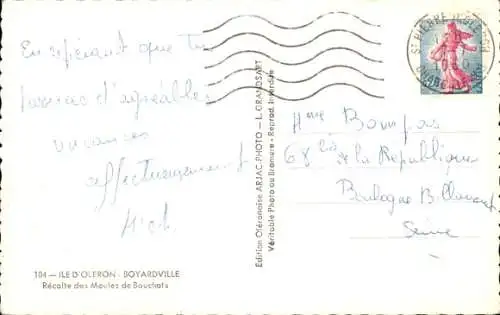 En espérant que tu
passes d'agréables
vacances
affectueusement
Mich
104 — ILE D'OLERON - BOYARDVILLE
Récolte des Moules de Bouchots
Edition Oléronaise ARJAC-PHOTO — L. GRANDSART
Véritable Photo au Bromure - Reprod. Interdite
ST PIERRE D'OLERON
Mme Bompas
68 bis de la République
Boulogne Billancourt
Seine